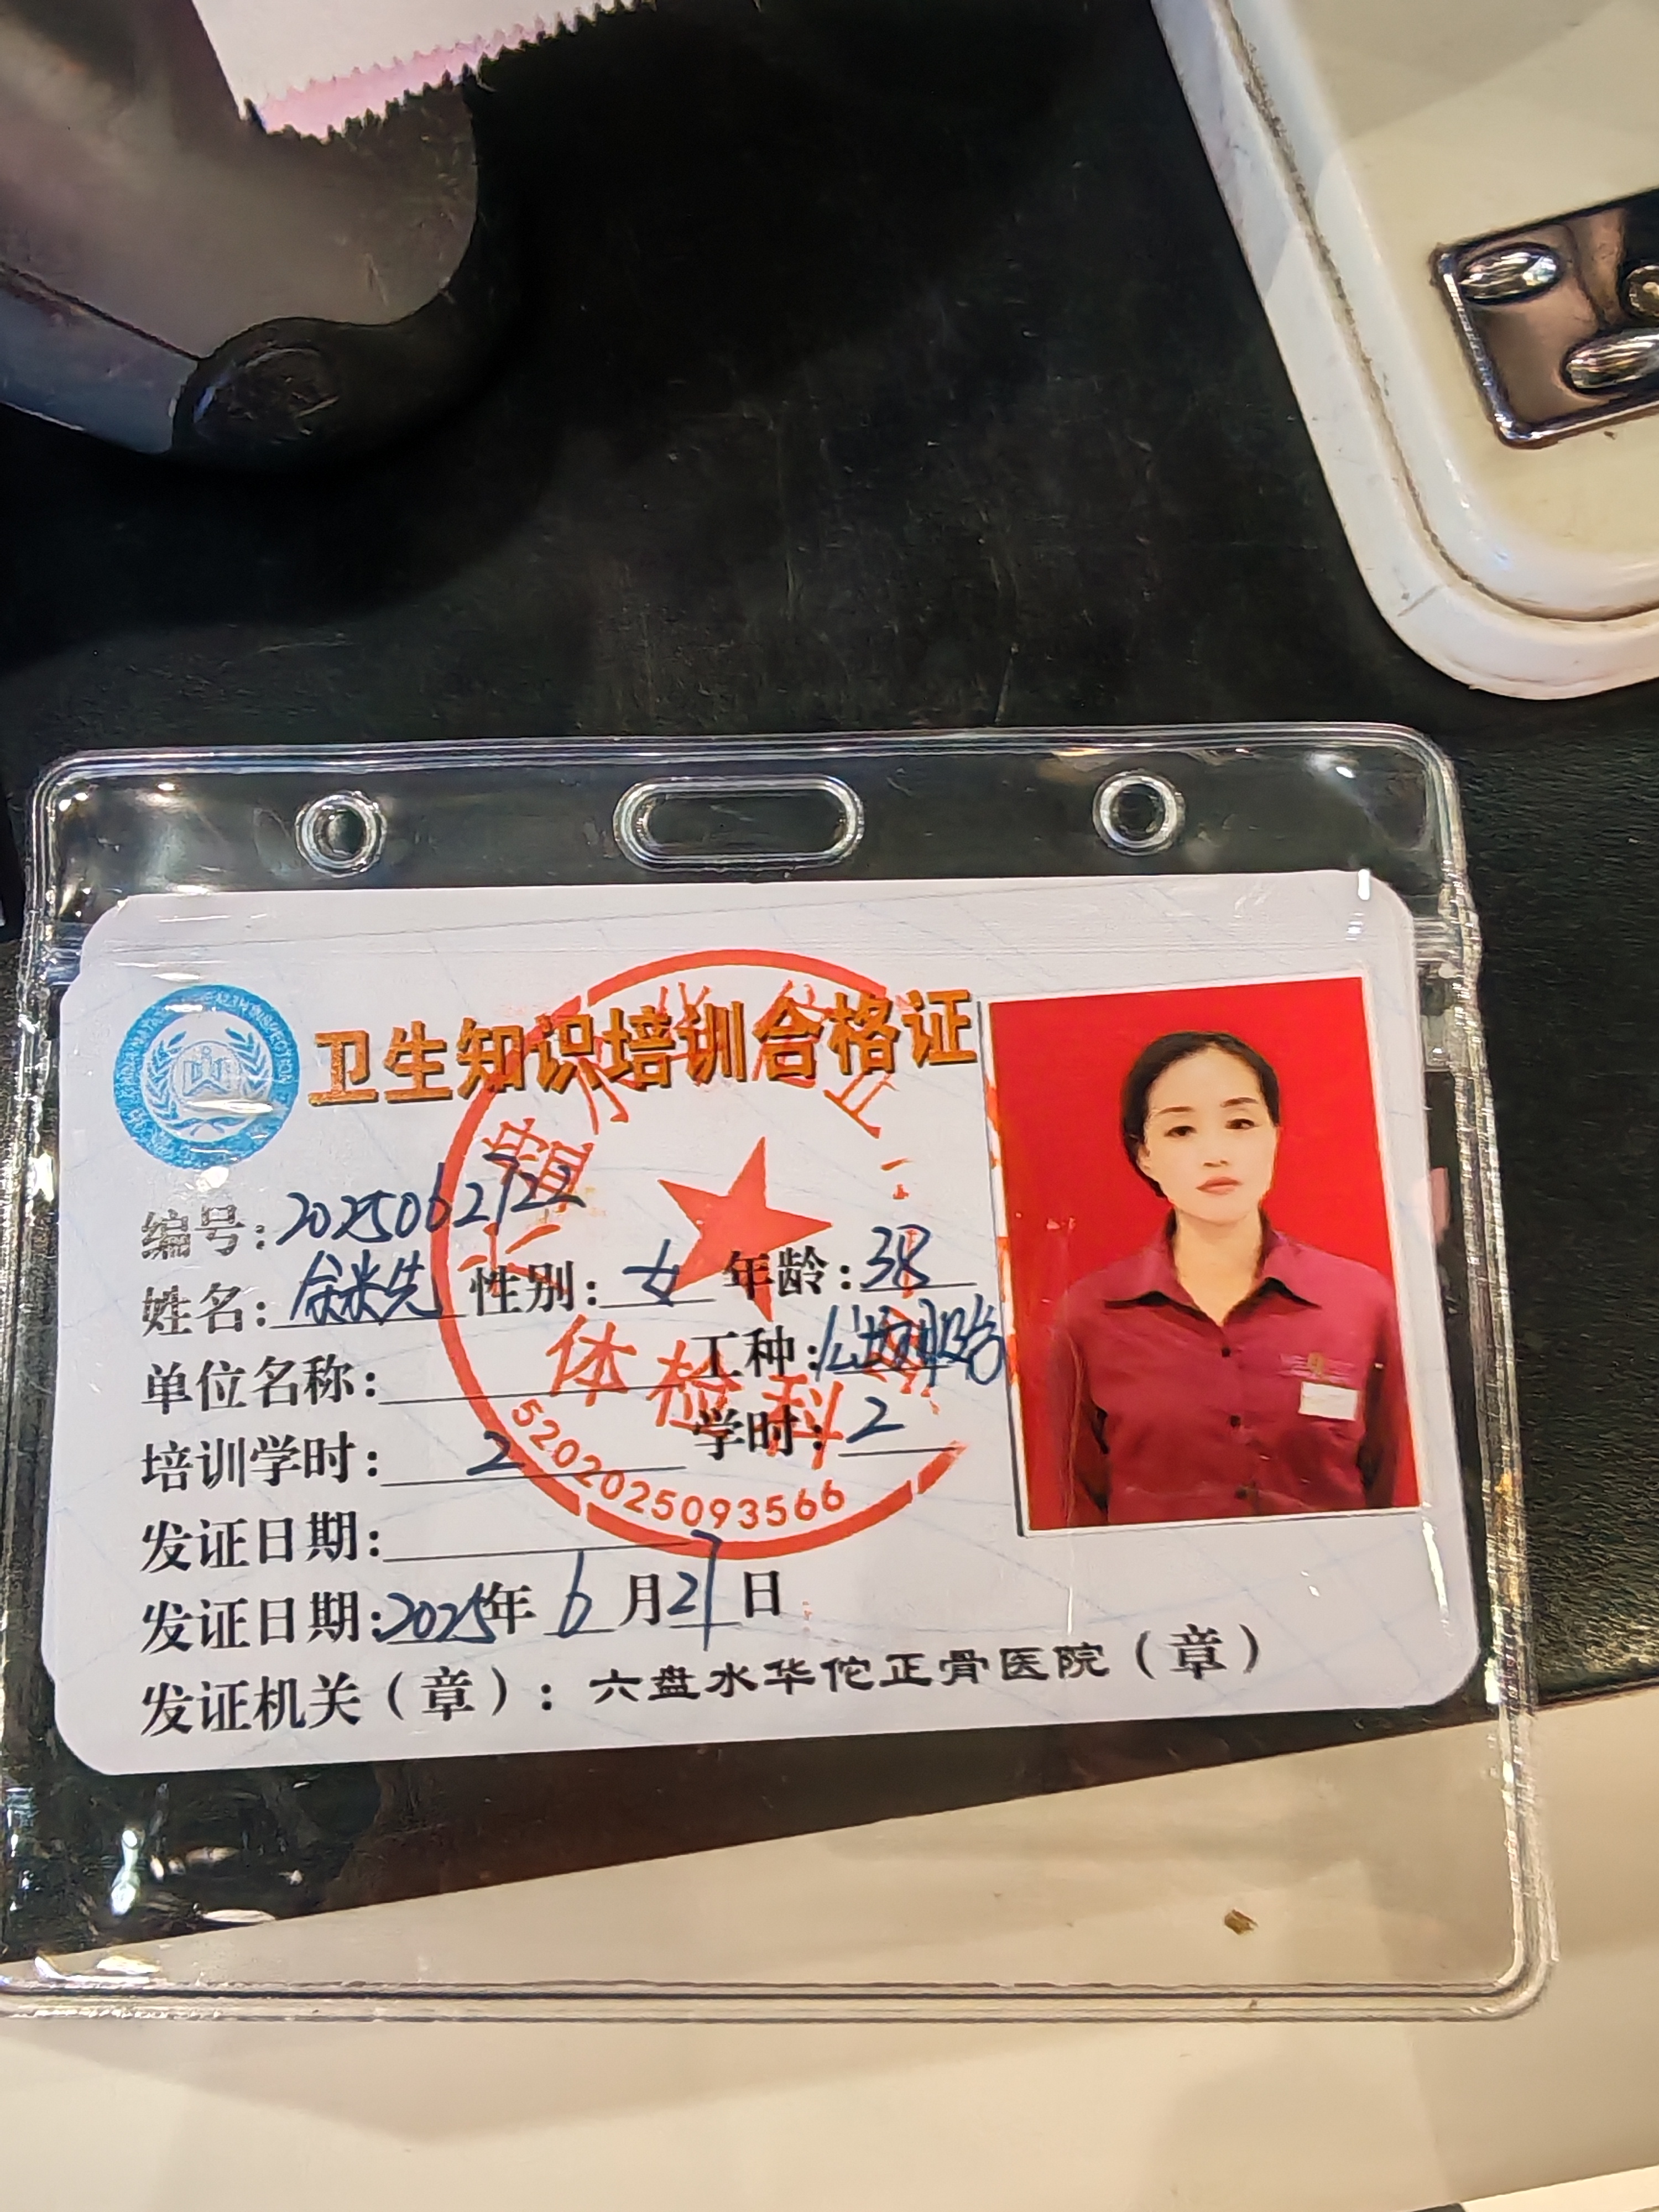 卫生知识培训合格证
编号:2025062122
姓名: 性别:女 年龄:38
单位名称: 工种:
培训学时:2 学时:2
发证日期:
发证日期:2025年6月21日
发证机关(章):六盘水华佗正骨医院(章)
体检科
5202025093566